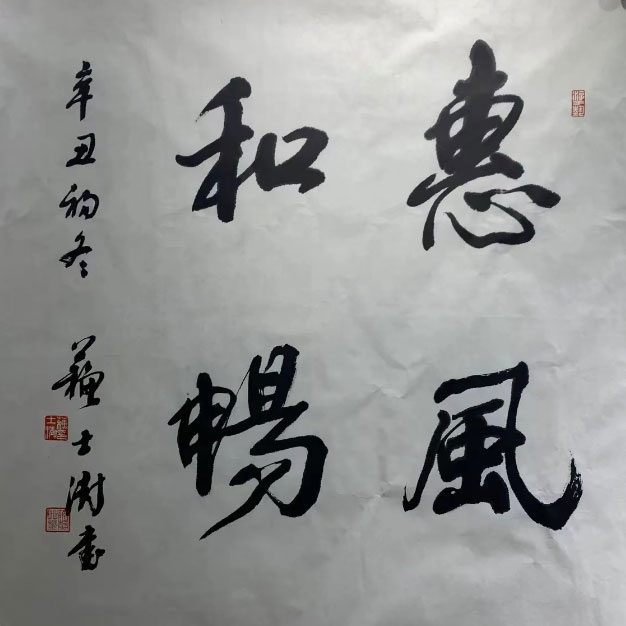 惠風
和暢
辛丑初冬
蘇士澍書